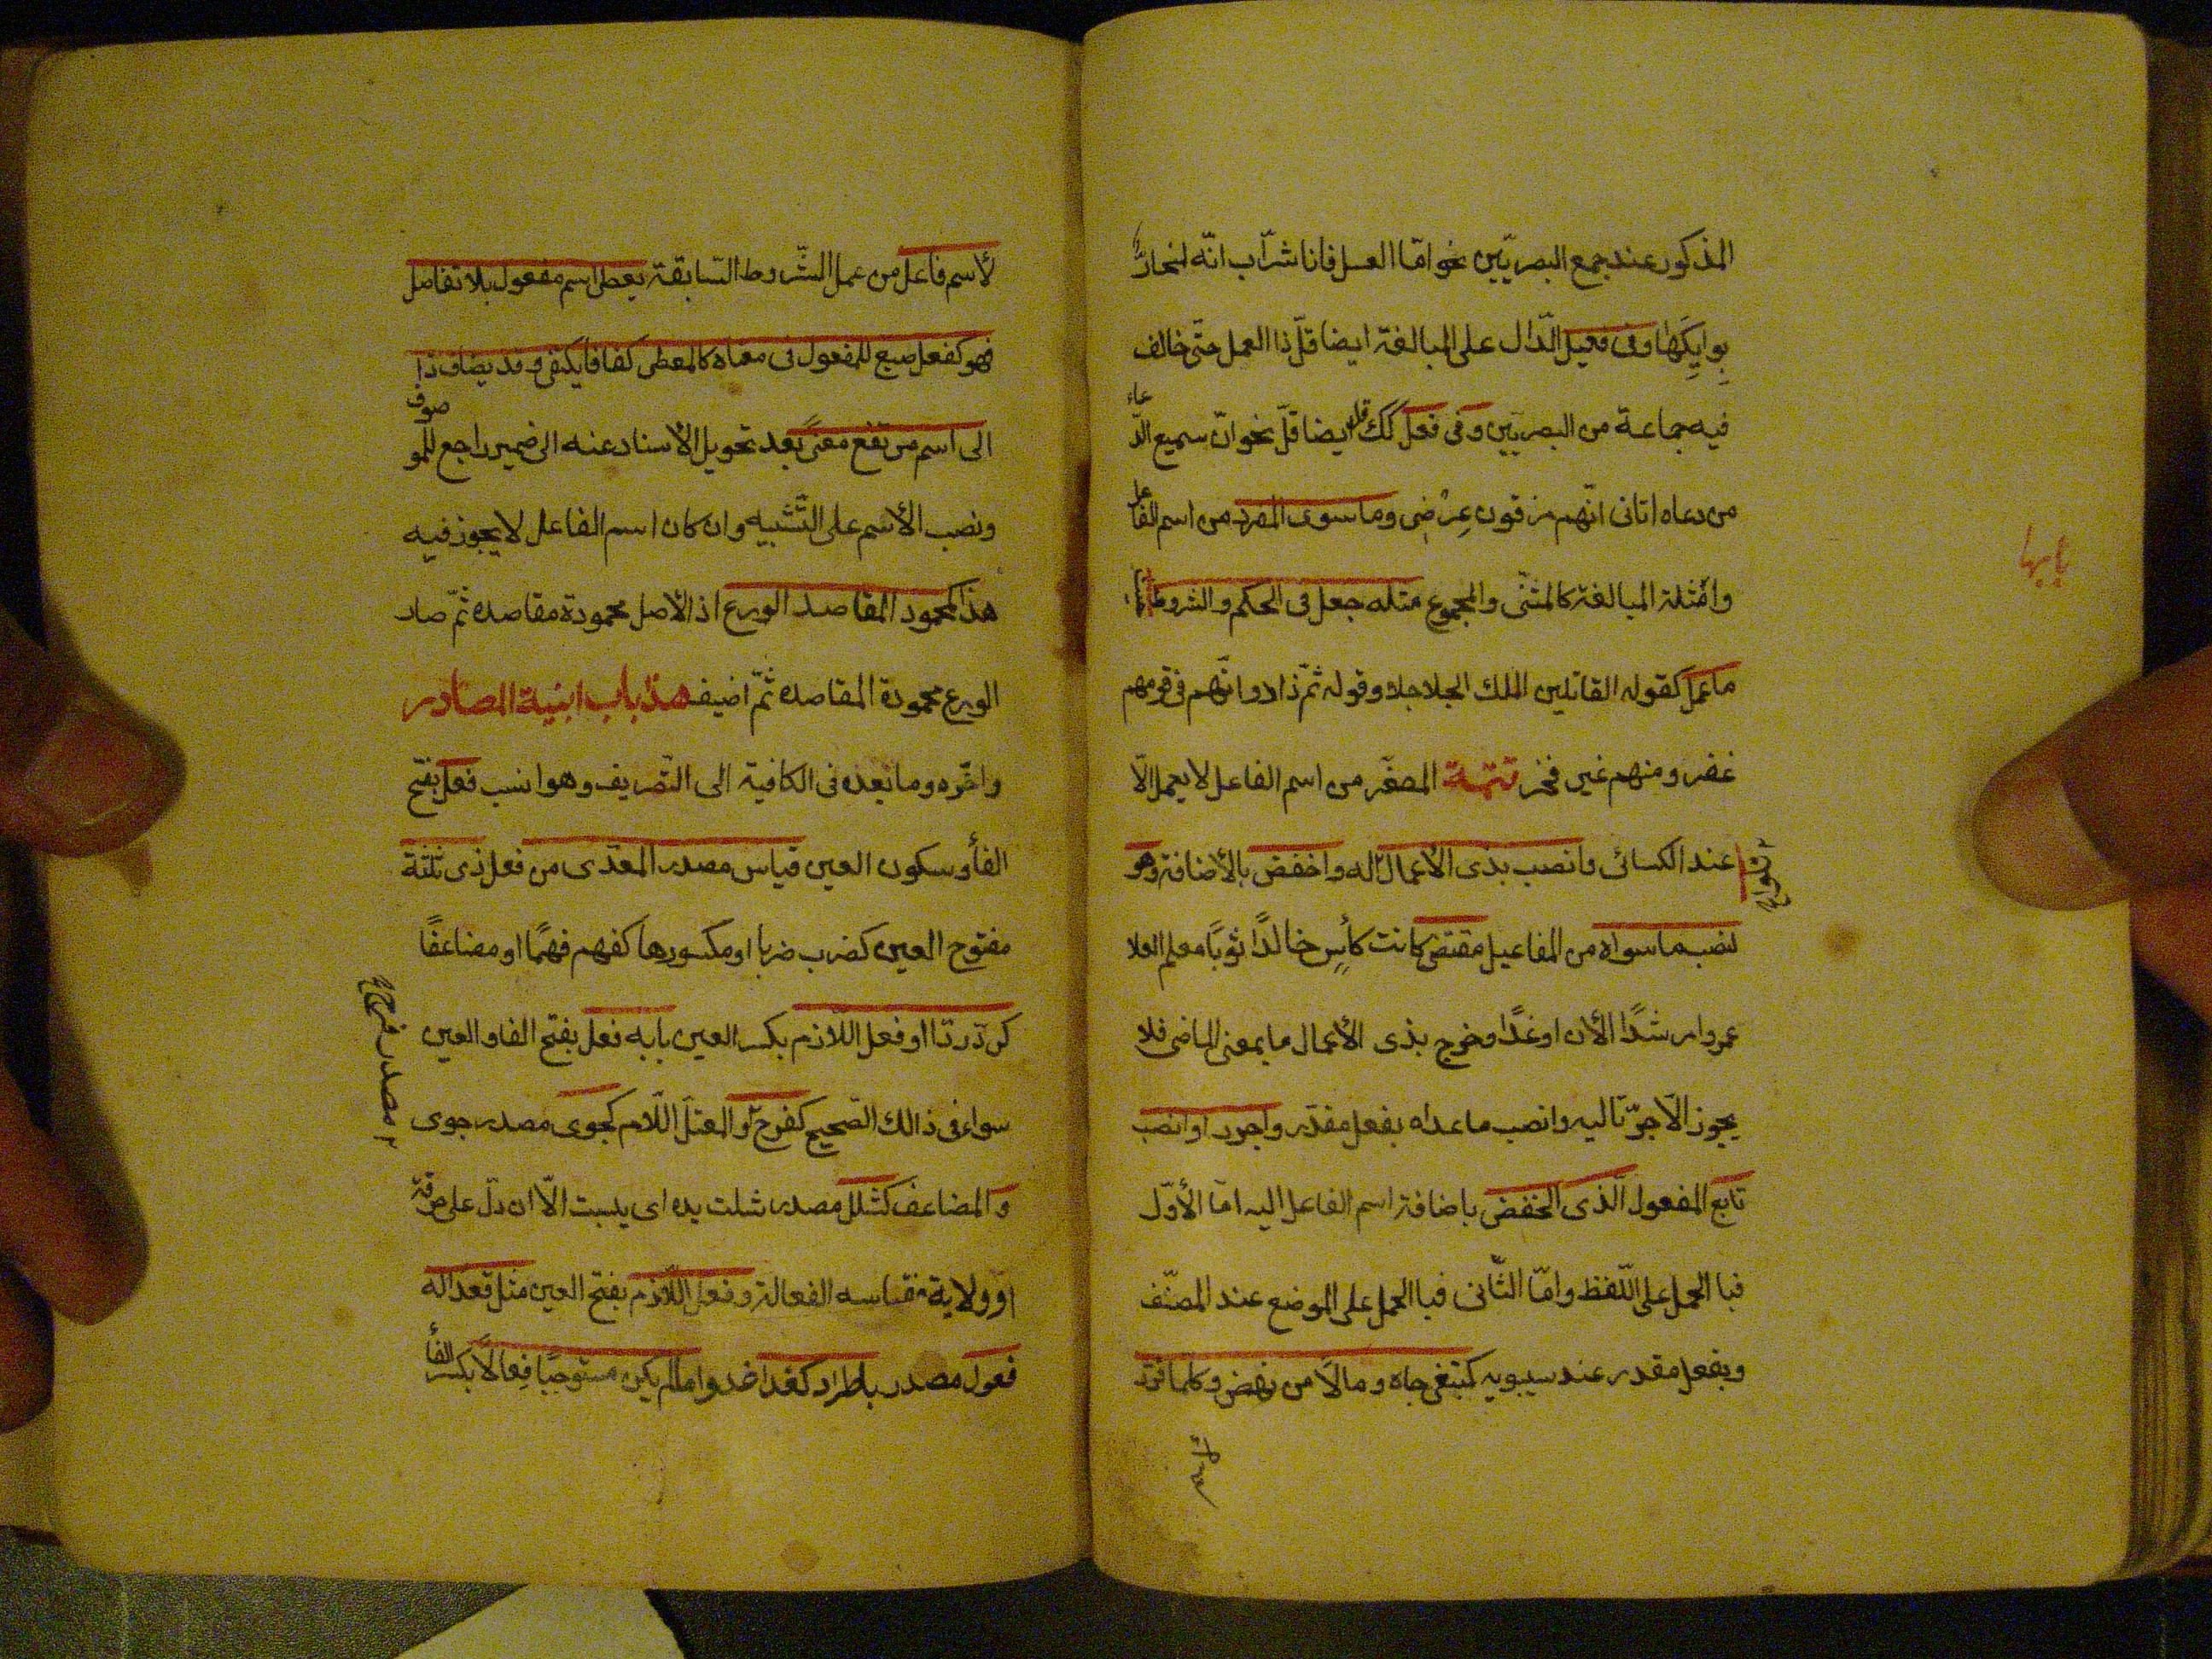 المذكور عند جمع البصريّين نحو امّا العسل فانا شرّاب انّه لمنحارٌ
بِوايِكَها وفى فعيل الدّال على المبالغة ايضا قلّ ذا العمل حتّى خالف
فيه جماعة من البصريّين وفى فعل كك قل ايضا قلّ نحو انّ سميع الدّعاء
من دعاه اتانى انّهم مزقون عِرْضِى وما سوى المفرد من اسم الفاعل
وامثلة المبالغة كالمثنّى والمجموع مثله جعل فى الحكم والشروط
ما عمل كقوله القاتلين الملك الحلاحلا وقوله ثمّ زادوا انّهم فى قومهم
غفر ومنهم غير فخر تتمّة المصغّر من اسم الفاعل لا يعمل الّا
عند الكسائى وانصب بذى الأعمال له واخفض بالأضافة وهو
لنصب ما سواه من المفاعيل مقتض كانت كأسٍ خالدًا ثوبًا معلم العلا
عمروا مرشدًا الأن او غدًا وخرج بذى الأعمال ما بمعنى الماضى فلا
يجوز الّا جرّ تاليه وانصب ما عداه بفعل مقدّر واجرر او انصب
تابع المفعول الّذى انخفض باضافة اسم الفاعل اليه امّا الأوّل
فبا الحمل على اللّفظ وامّا الثّانى فبا الحمل على الموضع عند المصنّف
وبفعل مقدر عند سيبويه كمبتغى جاه ومالًا من نهض وكلّما قرّر
لأسم فاعل من عمل الشّروط السّابقة يعطى اسم مفعول بلا تفاضل
فهو كفعل صيغ للمفعول فى معناه كالمعطى كفافا يكتفى وقد يضاف ذا
الى اسم مرتفع معنًى بعد تحويل الأسناد عنه الى ضمير راجع للموصوف
ونصب الأسم على التّشبيه وان كان اسم الفاعل لا يجوز فيه
هذا كمحمود المقاصد الورع اذ الأصل محمودة مقاصده ثمّ صار
الورع محمودة المقاصده ثمّ اضيف هذا باب ابنية المصادر
واخّره وما بعده فى الكافية الى التّصريف وهو انسب فعل بفتح
الفأ وسكون العين قياس مصدر المعدّى من فعل ذى ثلثة
مفتوح العين كضرب ضربا او مكسورها كفهم فهمًا او مضاعفًا
كردّ ردّا او فعل اللّازم بكسر العين بابه فعل بفتح الفا والعين
سواء فى ذالك الصّحيح كفرح او المعتلّ اللّام كجوى مصدر جوى
مصدر فرح
والمضاعف كشلل مصدر شلت يده اى يبست الّا ان دلّ على حرفة
او ولاية فقياسه الفعالة وفعل اللّازم بفتح العين مثل قعد اله
فعول مصدر باطراد كغدا غدوا ما لم يكن مستوجبًا فِعالًا بكسر الفأ